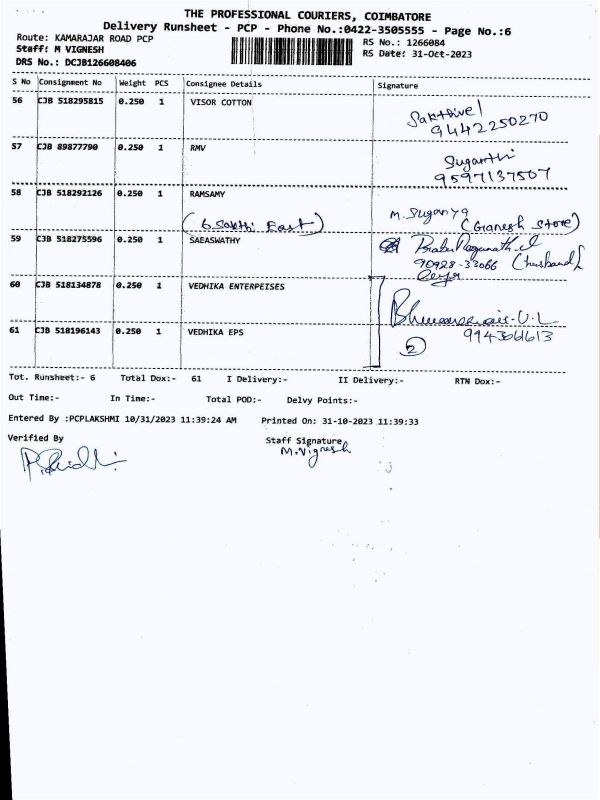 THE PROFESSIONAL COURIERS, COIMBATORE
Delivery Runsheet - PCP - Phone No.:0422-3505555 - Page No.:6
Route: KAMARAJAR ROAD PCP
RS No.: 1266084
Staff: M VIGNESH
RS Date: 31-Oct-2023
DRS No.: DCJB126608406
S No Consignment No Weight PCS Consignee Details Signature
56 CJB 518295815 0.250 1 VISOR COTTON Sakthivel
9442250270
57 CJB 89877790 0.250 1 RMV Suganthi
9597137507
58 CJB 518292126 0.250 1 RAMSAMY M. Suganya
(6 Sakthi East) (Ganesh Store)
59 CJB 518275596 0.250 1 SAEASWATHY
90928-33066 (husband)
60 CJB 518134878 0.250 1 VEDHIKA ENTERPEISES
61 CJB 518196143 0.250 1 VEDHIKA EPS
2
Tot. Runsheet:- 6 Total Dox:- 61 I Delivery:- II Delivery:- RTN Dox:-
Out Time:- In Time:- Total POD:- Delvy Points:-
Entered By :PCPLAKSHMI 10/31/2023 11:39:24 AM Printed On: 31-10-2023 11:39:33
Verified By Staff Signature
M.Vignesh